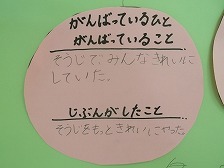 がんばっているひと
がんばっていること
そうじで、みんなきれいに
していた。
じぶんがしたこと
そうじをもっときれいにやった